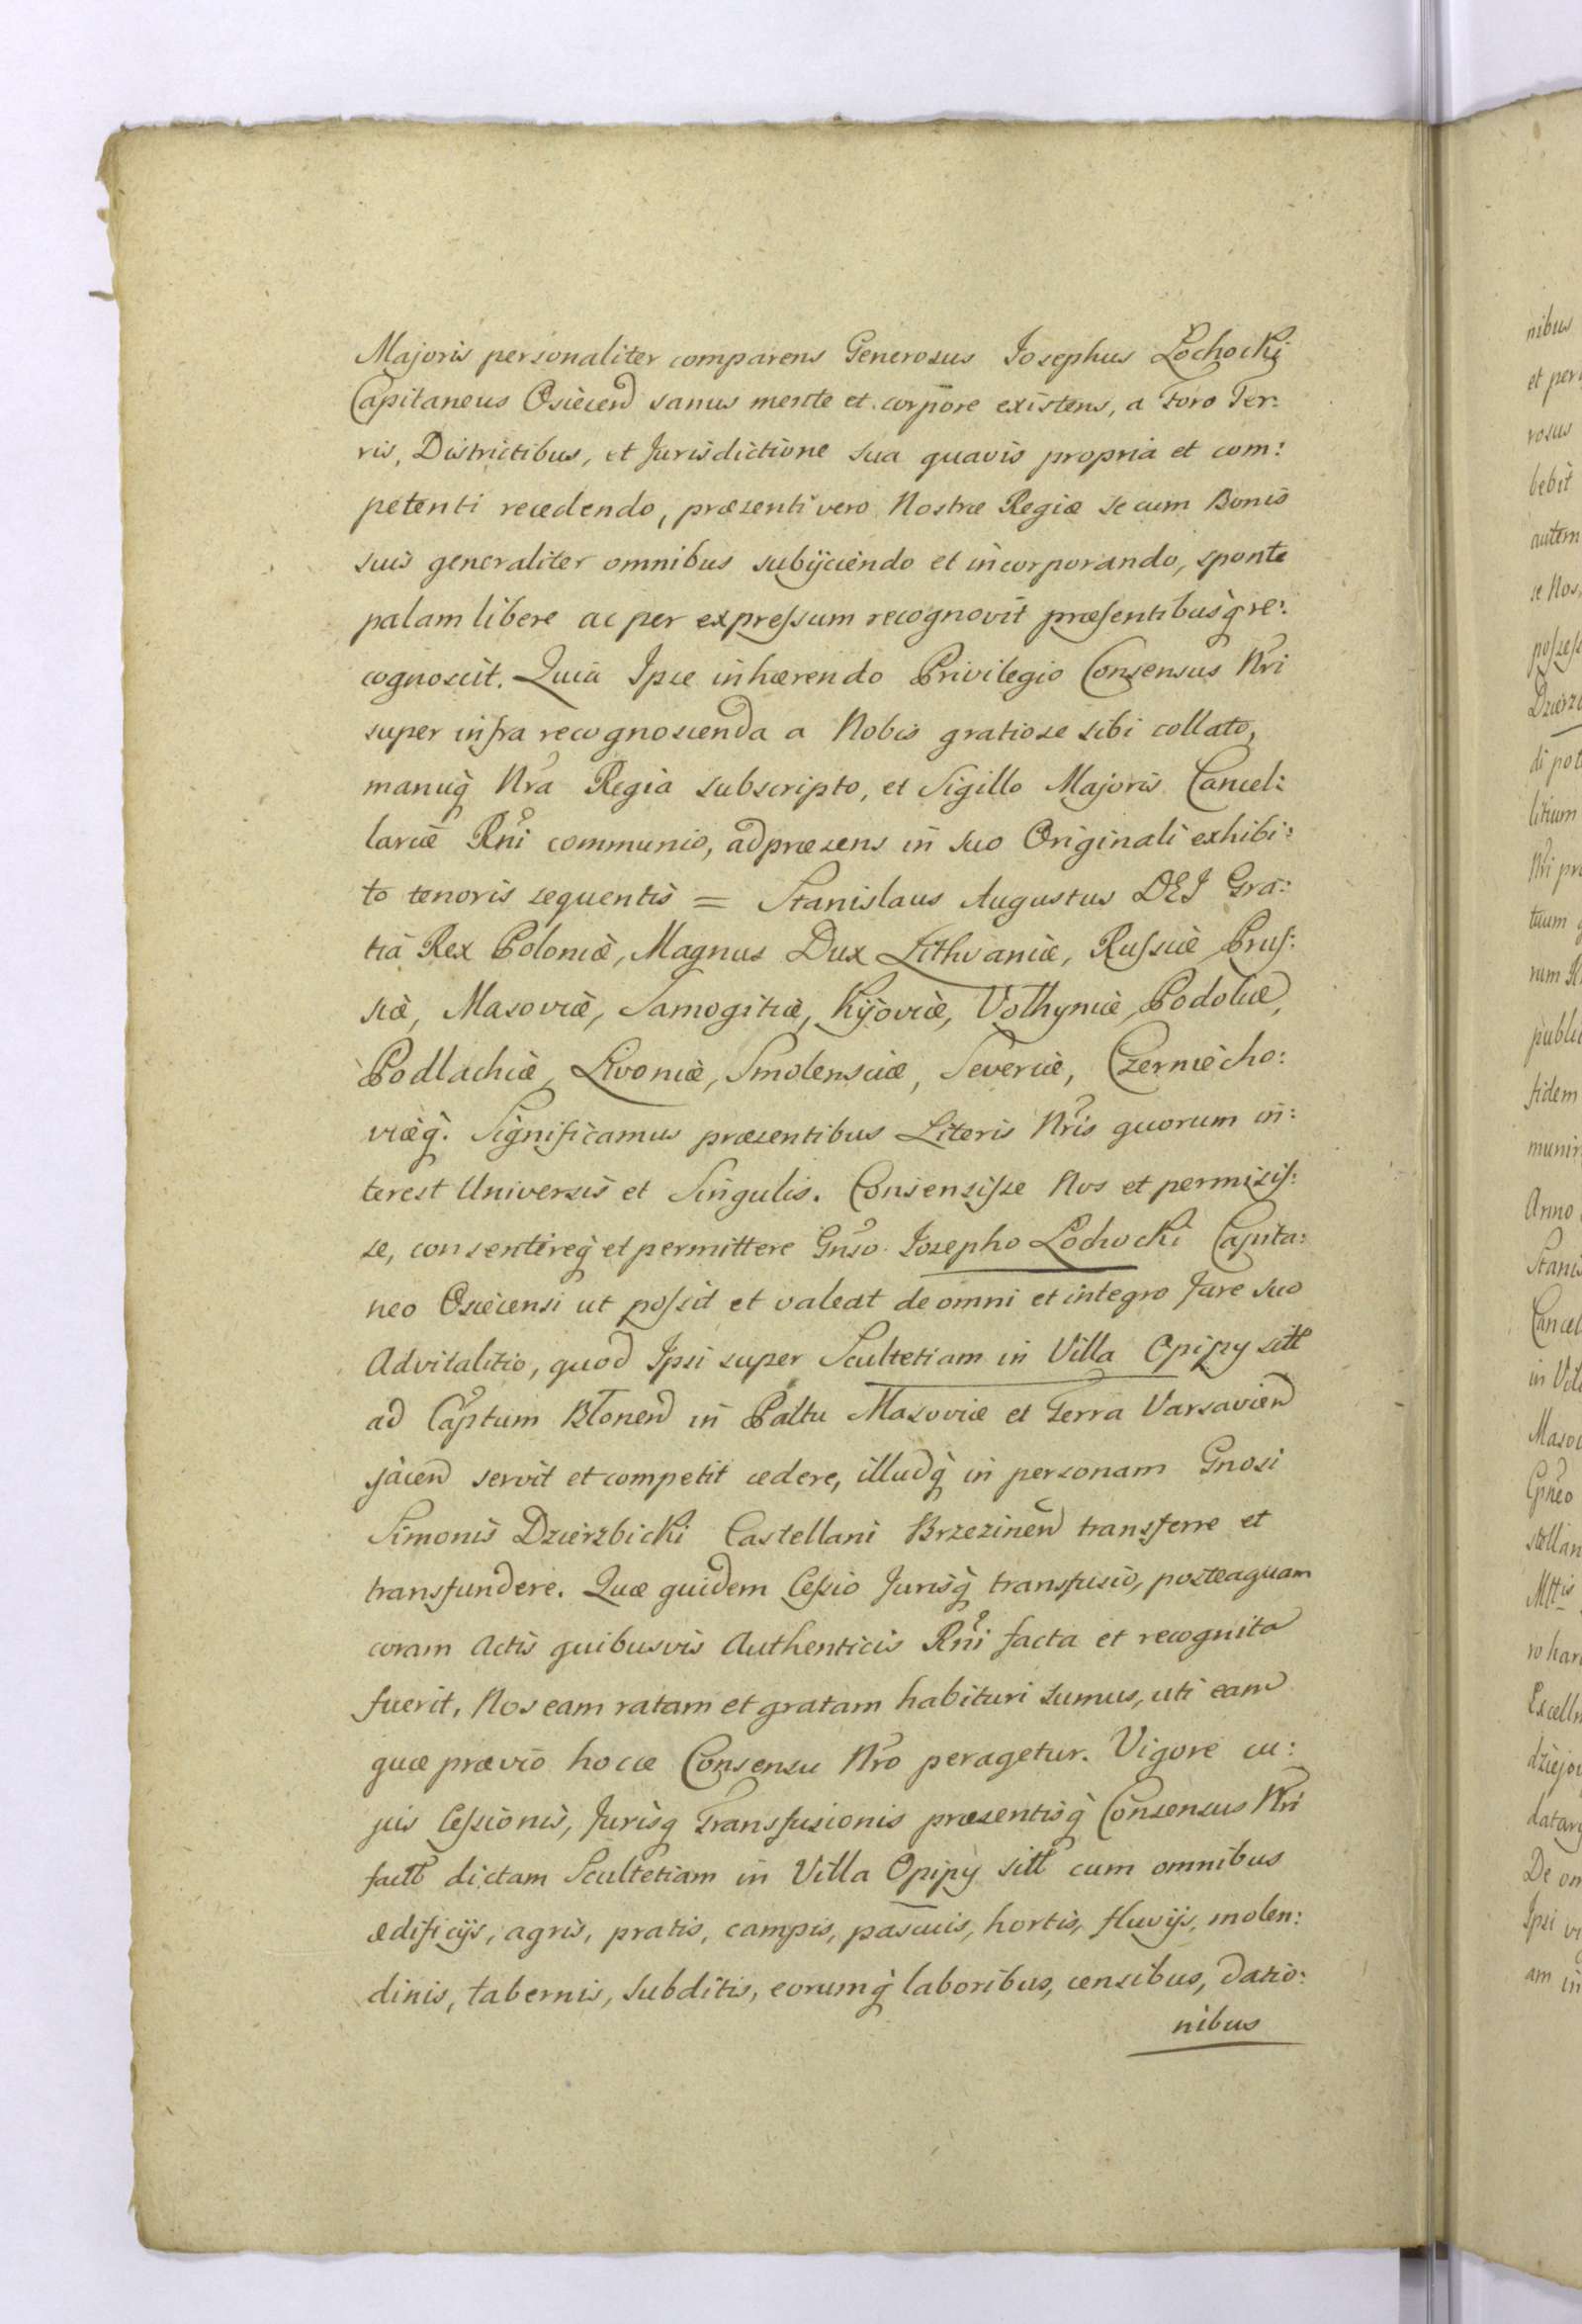 Majoris personaliter comparens Generosus Josephus Łochocki
Capitaneus Osiecen sanus mente et corpore existens, a Foro Ter:
ris, Districtibus, et Jurisdictione sua quavis propria et com:
petenti recedendo, præsenti vero Nostræ Regiæ se cum Bonis
suis generaliter omnibus subijciendo et incorporando, sponte
palam libere ac per expressum recognovit præsentibusq̀ re:
cognoscit. Quia Ipse inhærendo Privilegio Consensus Nri
super infra recognoscenda a Nobis gratiose sibi collato,
manuq̀ Nra Regia subscripto, et Sigillo Majoris Cancel:
lariæ Rni communio, ad præsens in suo Originali exhibi:
to tenoris sequentis = Stanislaus Augustus DEI Gra:
tia Rex Poloniæ, Magnus Dux Lithvaniæ, Russiæ Prus:
siæ, Masoviæ, Samogitiæ, Kijoviæ, Volhyniæ, Podoliæ,
Podlachiæ, Livoniæ, Smolensciæ, Severiæ, Czerniecho:
viæq̀. Significamus præsentibus Literis Nris quorum in:
terest Universis et Singulis. Consensisse Nos et permisis:
se, consentireq̀ et permittere Gnso Josepho Łochocki Capita:
neo Osiecensi ut possit et valeat de omni et integro Jure suo
Advitalitio, quod Ipsi super Scultetiam in Villa Opipy sitt
ad Captum Błonen in Paltu Masoviæ et Terra Varsavien
jacen servit et competit cedere, illudq̀ in personam Gnosi
Simonis Dzierzbicki Castellani Brzezinen transferre et
transfundere. Quæ quidem Cessio Jurisq̀ transfusio, posteaquam
coram Actis quibusvis Authenticis Rni facta et recognita
fuerit, Nos eam ratam et gratam habituri sumus, uti eam
quæ prævio hocce Consensu Nro peragetur. Vigore cu:
jus Cessionis, Jurisq Transfusionis præsentisq̀ Consensus Nri
factt dictam Scultetiam in Villa Opipy sitt cum omnibus
ædificijs, agris, pratis, campis, pascuis, hortis, fluvijs, molen:
dinis, tabernis, subditis, eorumq̀ laboribus, censibus, datio:
nibus
nibus
et per
rosus
bebit
autem
ce Nos
possess
Dzierz
di pot
litium
Nri pr
tuum
rum R
public
fidem
munir
Anno
Stanis
Cancel
in Vil
Masov
Gneo
stellan
Mttis
ro har
Excelln
dziejo
datar
De om
Ipsi
am in